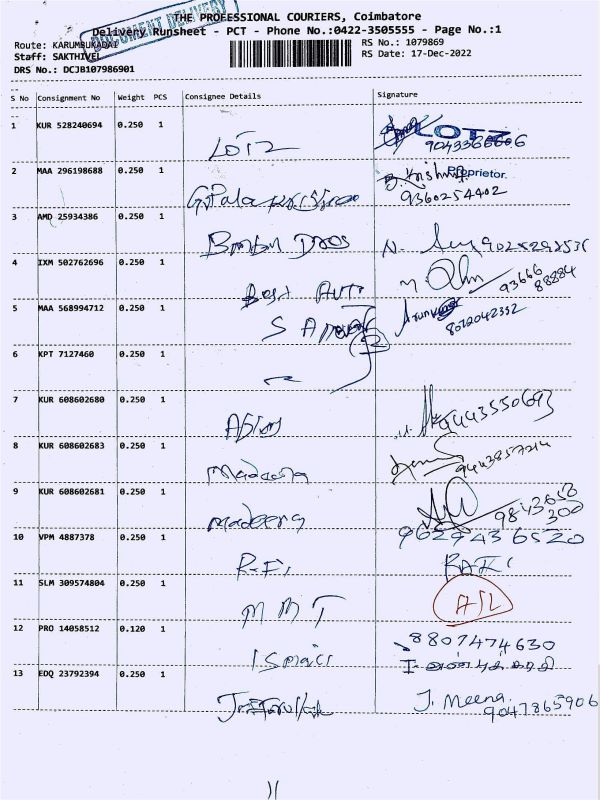 THE PROFESSIONAL COURIERS, Coimbatore
DOCUMENT DELIVERY
Delivery Runsheet - PCT - Phone No.:0422-3505555 - Page No.:1
Route: KARUMBUKADAI
RS No.: 1079869
Staff: SAKTHIVEL
RS Date: 17-Dec-2022
DRS No.: DCJB107986901
S No Consignment No Weight PCS Consignee Details Signature
1 KUR 528240694 0.250 1 LOTZ LOTZ
9043366606
Proprietor.
2 MAA 296198688 0.250 1 B. Krishna
9360254402
3 AMD 25934386 0.250 1
4 IXM 502762696 0.250 1 Best Auto 93666
88884
5 MAA 568994712 0.250 1 Arun
8072042352
6 KPT 7127460 0.250 1
7 KUR 608602680 0.250 1 9443550693
8 KUR 608602683 0.250 1 Madeena 9443857214
9 KUR 608602681 0.250 1 madeena 9843658
300
10 VPM 4887378 0.250 1 R.F.I 9629436520
RAFI
11 SLM 309574804 0.250 1 M M T
12 PRO 14058512 0.120 1 Ismail 8807474630
13 EDQ 23792394 0.250 1 J. Meena.
9047865906